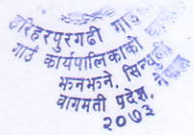 हरिहरपुरगढी गाउँ
गाउँ कार्यपालिकाको
झनझने, सिन्धुली
वागमती प्रदेश, नेपाल
२०७३